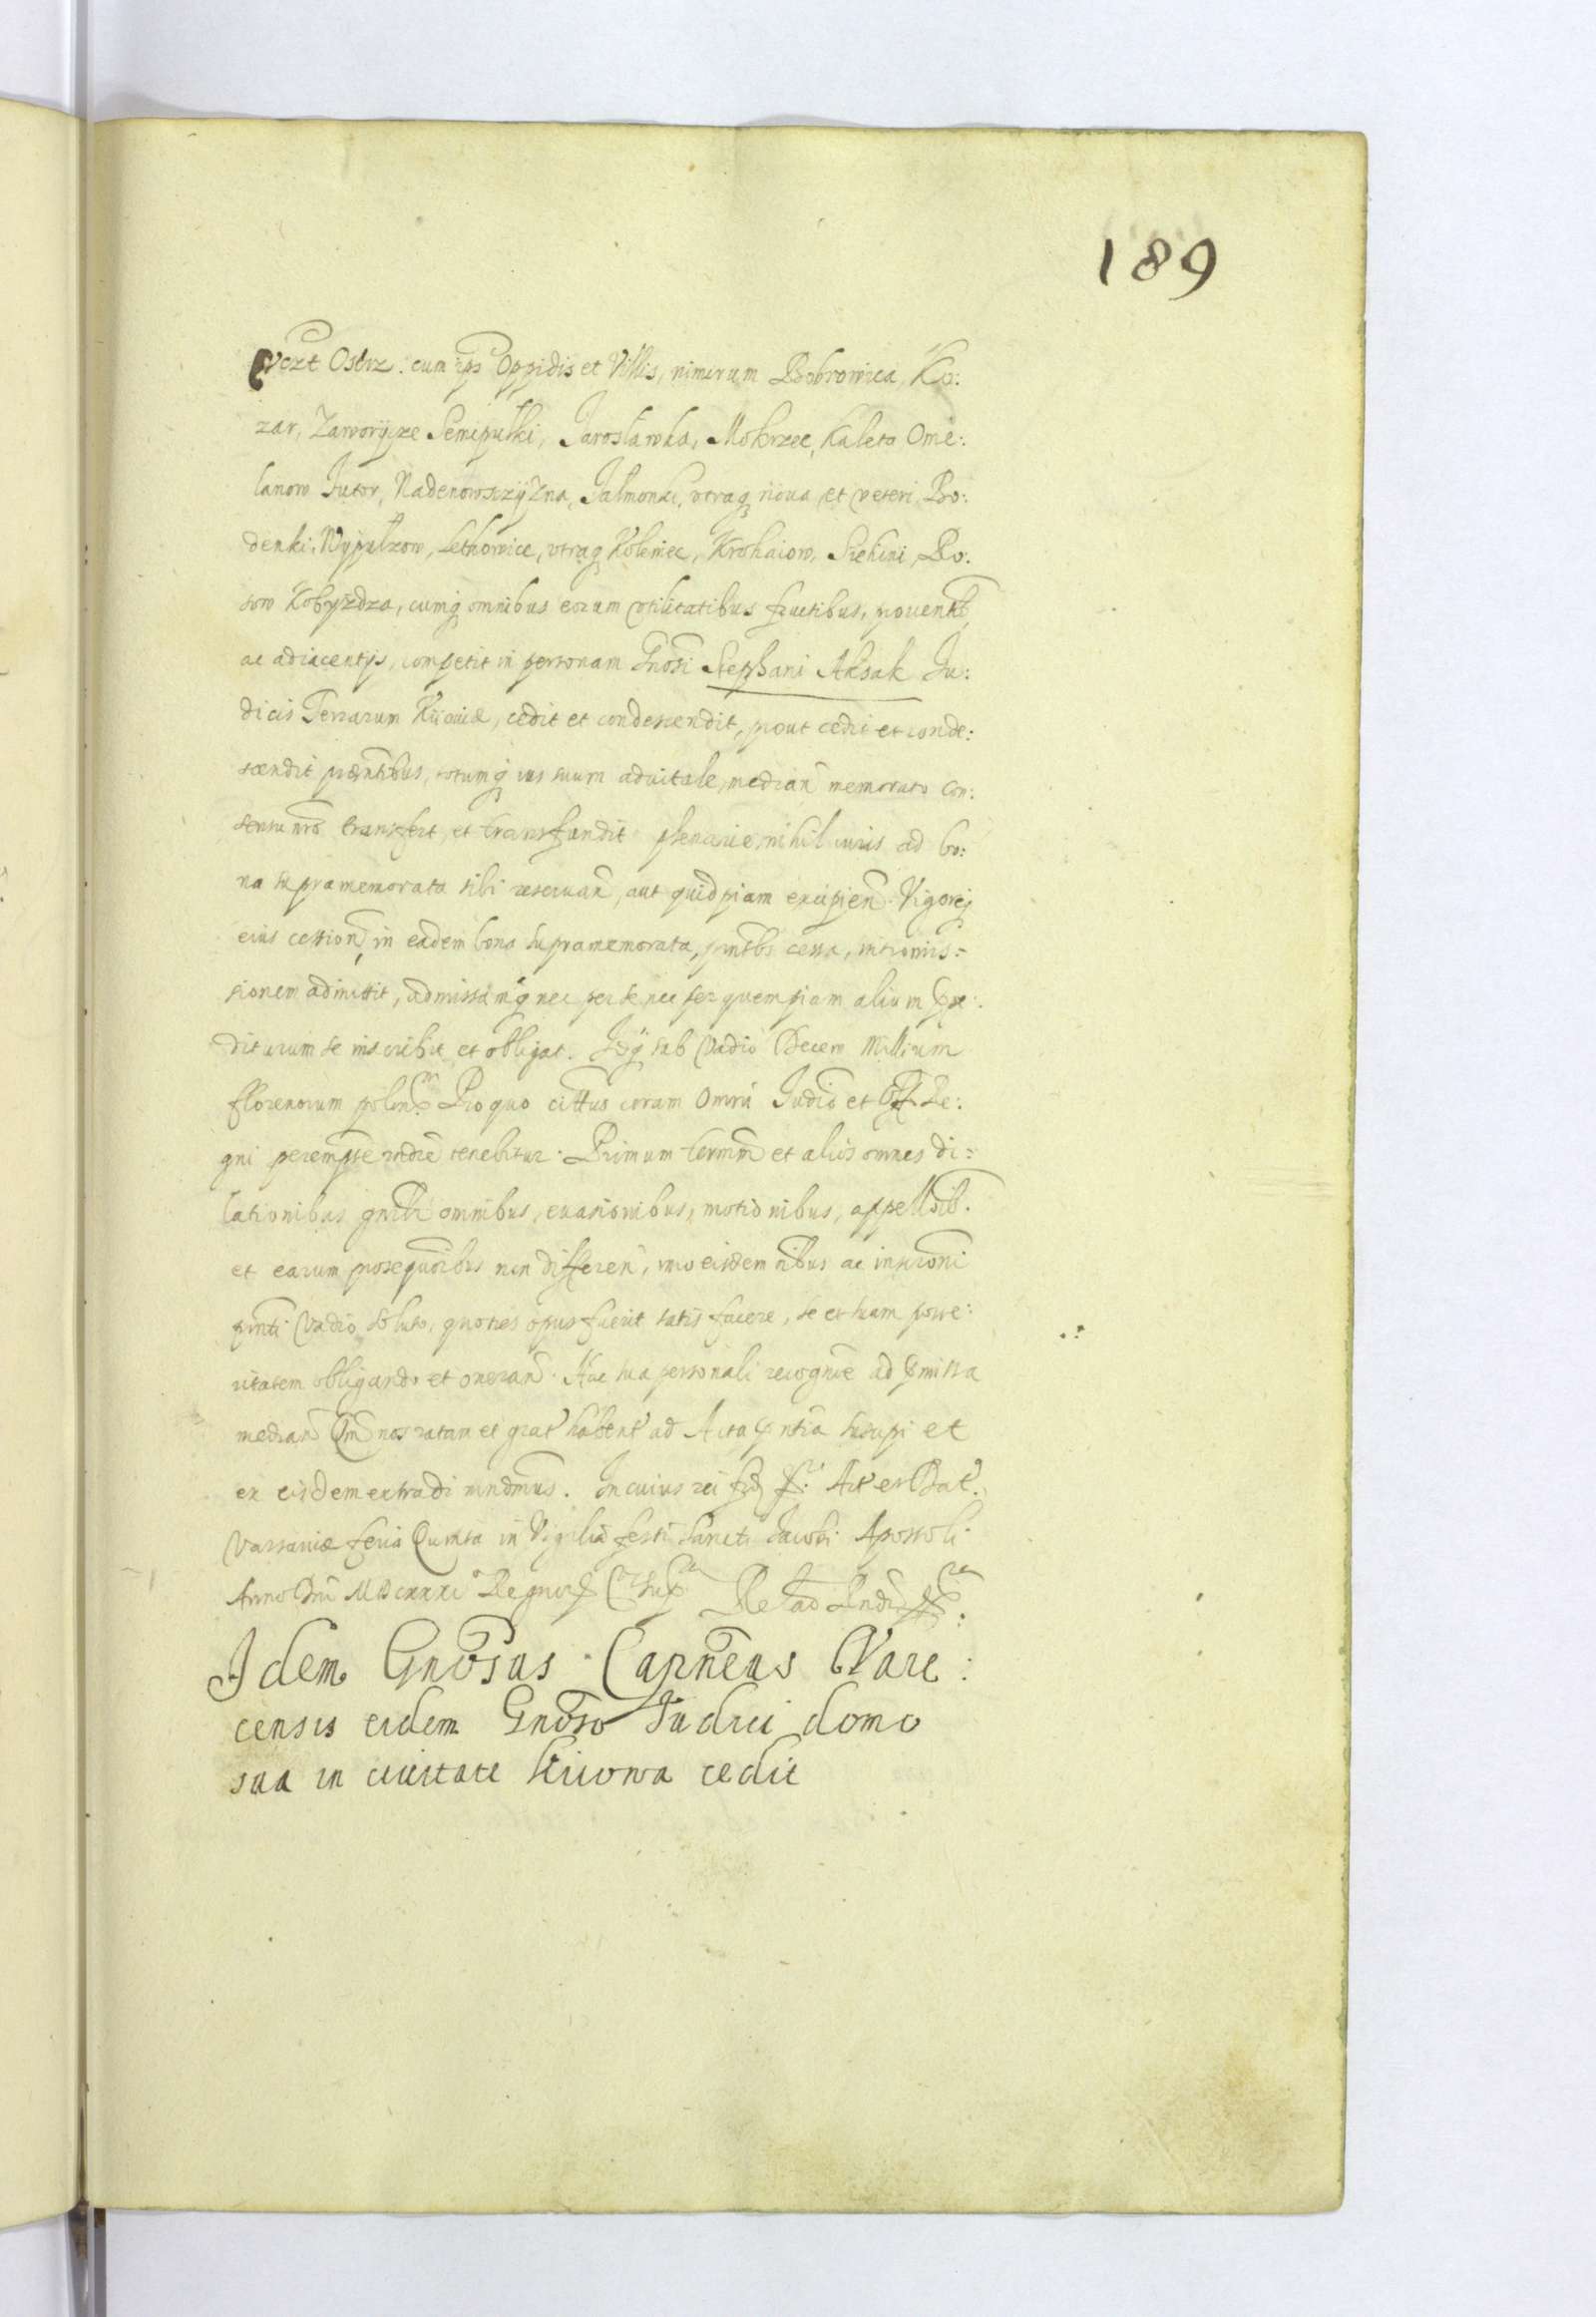 189
Oster: cum ips Oppidis et Villis, nimirum Bobrowica, Ko:
zar, Zaworÿcze Semipulki, Jaroslawka, Mokrzec, Kaleta Ome:
lanow Jutor, Nadenowsczÿzna, Jalmonki, vtraq noua et veteri Bo:
denki, Wypolzow, Letkowice, vtraq Kolemiec, Krohaiow, Siekini, Ro:
sow Kobyzdza, cumq omnibus eorum vtilitatibus fructibus, prouentib
ac adiacentijs, competit in personam Gnosi Stephani Aksak Ju:
dicis Terrarum Kiiouiæ, cedit et condescendit, prout cedit et conde:
scendit præntibus, totumq ius suum aduitale, median memorato con:
sensu nro transfert, et transfundit plenarie, nihil iuris ad bo:
na supramemorata sibi reseruan, aut quidpiam excipien. Vigoreq
eius cession, in eadem bona supramemorata, pntibs cessa, intromis:
sionem admittit, admissamq nec per se nec per quempiam alium
diturum se inscribit et obligat. Idq sub Vadio Decem Millium
florenorum polon. Pro quo cittus coram Omni Judicio et Off Re:
gni perempte rndre tenebitur. Primum termin et alios omnes di:
lationibus gnrbs omnibus, euasionibus, motionibus, appellōib.
et earum prosequōibus non differen, imo eisdem nbus ac intromi
pnti Vadio soluto, quoties opus fuerit satisfacere, se et suam poste:
ritatem obligando et oneran. Hac sua personali recognne ad pmissa
median Qm nos ratam et grat habent ad Acta pntia suscipi et
ex eisdem extradi mndmus. In cuius rei fid Act et Dat.
Varsauiæ feria Quinta in Vigilia festi Sancti Jacobi Apostoli
Anno Dni MDCXXXI Regnor
Idem Gnosus Capneus Vare:
censis eidem Gnoso Judici domo
sua in ciuitate Kiiowa cedit